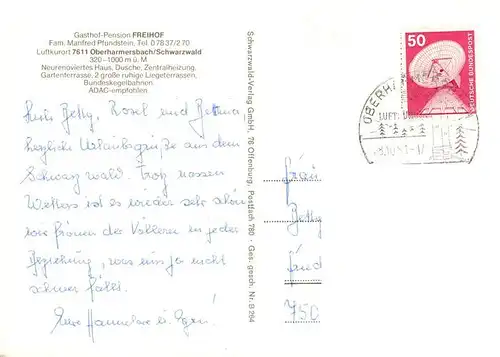 Gasthof-Pension FREIHOF
Fam. Manfred Pfundstein, Tel. 07837/270
Luftkurort 7611 Oberharmersbach/Schwarzwald
320-1000 m ü. M
Neurenoviertes Haus, Dusche, Zentralheizung,
Gartenterrasse, 2 große ruhige Liegeterrassen,
Bundeskegelbahnen
ADAC-empfohlen
Betty, Rosel und
herzliche Urlaubsgrüße aus dem
Schwarzwald. Trotz nassen
Wetters ist es wieder sehr schön
wir frönen der Völlerei in jeder
Beziehung, was uns ja nicht
schwer fällt.
Eure Hannelore u.
Schwarzwald-Verlag GmbH, 76 Offenburg, Postfach 780 · Ges. gesch. Nr. B 264
50
DEUTSCHE BUNDESPOST
OBERH
LUFT
Frau
Betty
750